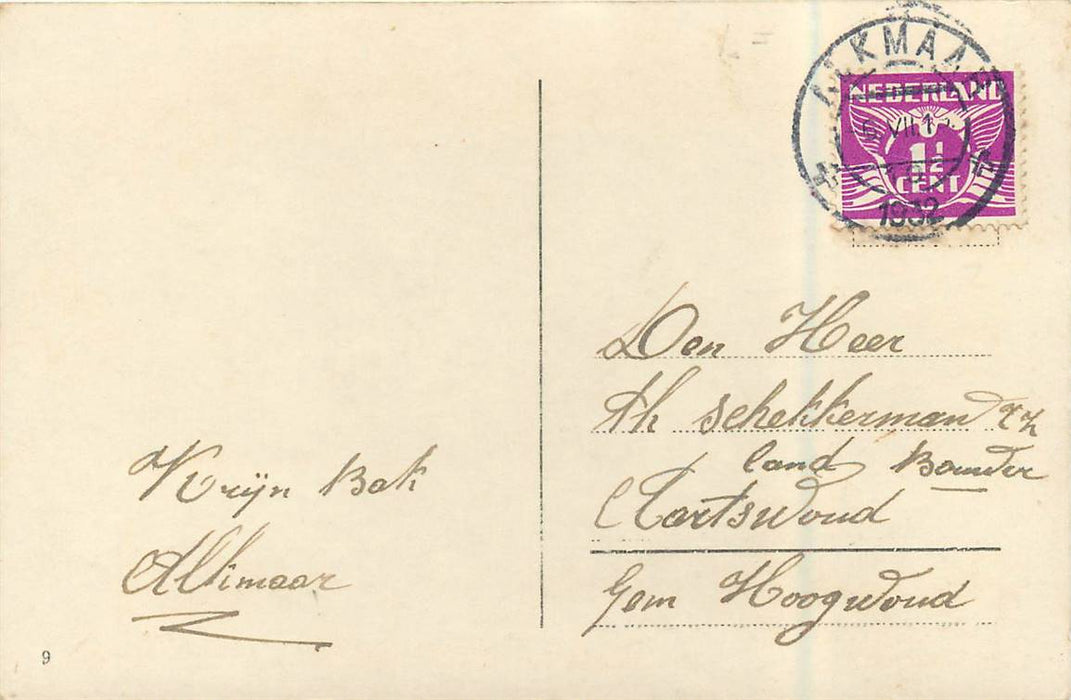 ALKMAAR
VII 1
1932
NEDERLAND
1½
CENT
Den Heer
Th Schekkerman
land Bouwer
Aartswoud
Gem Hoogwoud
Krijn Bak
Alkmaar
9